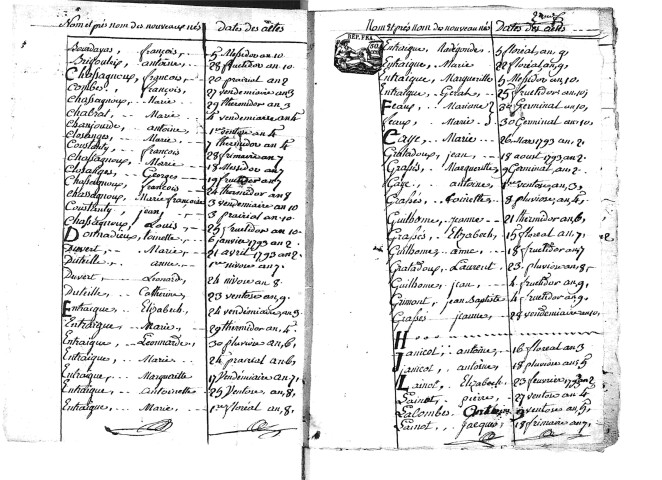 Nom et prés nom des nouveaux nés Dates des actes
Bourdayas, françois, 5 Messidor an 10.
antoine, 28 fructidor an 10
Chassagnoux, françois, 20 prairial an 2
Combes, françois, 27 vendemiaire an 3
Chassagnoux, Marie 29 thermidor an 3
Chabral, Marie vendemiaire an 4
antoine 1er ventose an 4
Marie, 7 thermidor an 4
Constanty, françois 28 frimaire an 7
Chassagnoux, Marie 18 Messidor an 7
Georges 19 fructidor an 7
Chassagnoux, françois 24 thermidor an 8
Chassagnoux, Marie françoise 3 vendemiaire an 10
Constanty, jean, 3 prairial an 10.
Chassagnoux, Louis, 25 fructidor an 10
Donnadieu, toinette, 6 janvier 1793 an 2.
Duvert, Marie, 21 avril 1793 an 2
Duteille, anne, 1er nivose an 7.
Duvert, Leonard, 24 nivose an 8.
Duteille, Catherine 23 ventose an 9.
Entraigue, Elizabeth, 24 vendemiaire an 3
Entraigue, Marie, 29 thermidor an 4
Entraigue, Leonnarde, 30 pluviose an 6,
Entraigue, Marie 24 prairial an 6,
Entraigue, Margueritte 17 Vendemiaire an 7,
Entraigue, Antoinette 25 Ventose, an 8,
Entraigue, Marie, 1er floréal an 8,
Nom et prés nom de nouveau né Dates des actes
REP. FRA.
Entraigue, Radegonde, 5 floréal, an 9,
Entraigue, Marie 22 floréal, an 9,
Entraigue, Margueritte 5 Messidor an 10,
Entraigue, Gerat, 25 fructidor an 10,
Feaux, Marionne 30 Germinal an 10,
Feaux, Marie 30 Germinal an 10,
Gaye, Marie, 26 Mars 1793 an 2.
Grataloux, jean, 18 aoust 1793 an 2
Grasses, Margueritte, Germinal an 2.
Gaye, antoine, 1er ventose, an 3,
Grasses, toinette, 8 pluviose, an 4,
Guilhome, jeanne, 21 thermidor an 6,
Grasses, Elizabeth, 15 floréal an 7,
Guilhome, anne, 18 fructidor an 7
Grataloux, Laurent 23 pluviose an 8,
Guilhome, jean, 4 fructidor an 9,
Gumont, jean Baptiste 4 fructidor an 9.
Grasses, jeanne, 28 vendemiaire an 10,
H
Janicot, antoine, 16 floréal an 3
Janicot, antoine, 18 pluviose an 5
Lainot, Elizabeth, 23 fevrier 1793 an 2
Lainot, pierre, 27 ventose an 4
Lacombe, ventose an 5,
Lainot, Jacques, 18 frimaire an 7,